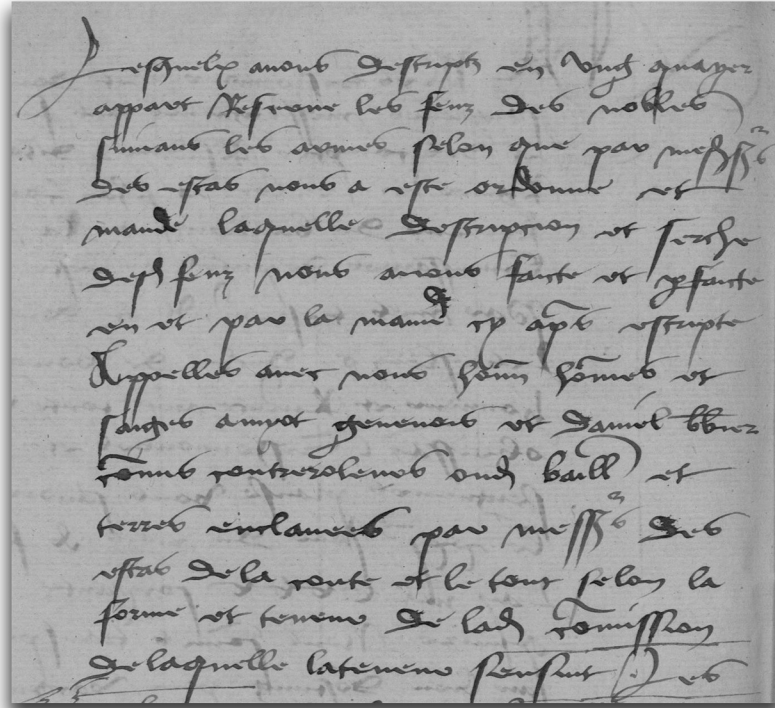 Lesquelx avons descriptz en ung quayer
appart Reserve les feuz des nobles
suivans les armes selon que par messrs
des estas nous a este ordonne et
mande laquelle description et serche
desd feuz nous avons faicte et pfaicte
en et par la manie cy aps escripte
Appelles avec nous honn hommes et
saiges amyot genevois et daniel
comis contreroleurs oud baill et
terres enclavees par messrs des
estas de la conte et le tout selon la
forme et teneur de lad comission
de laquelle la teneur sensuit Es